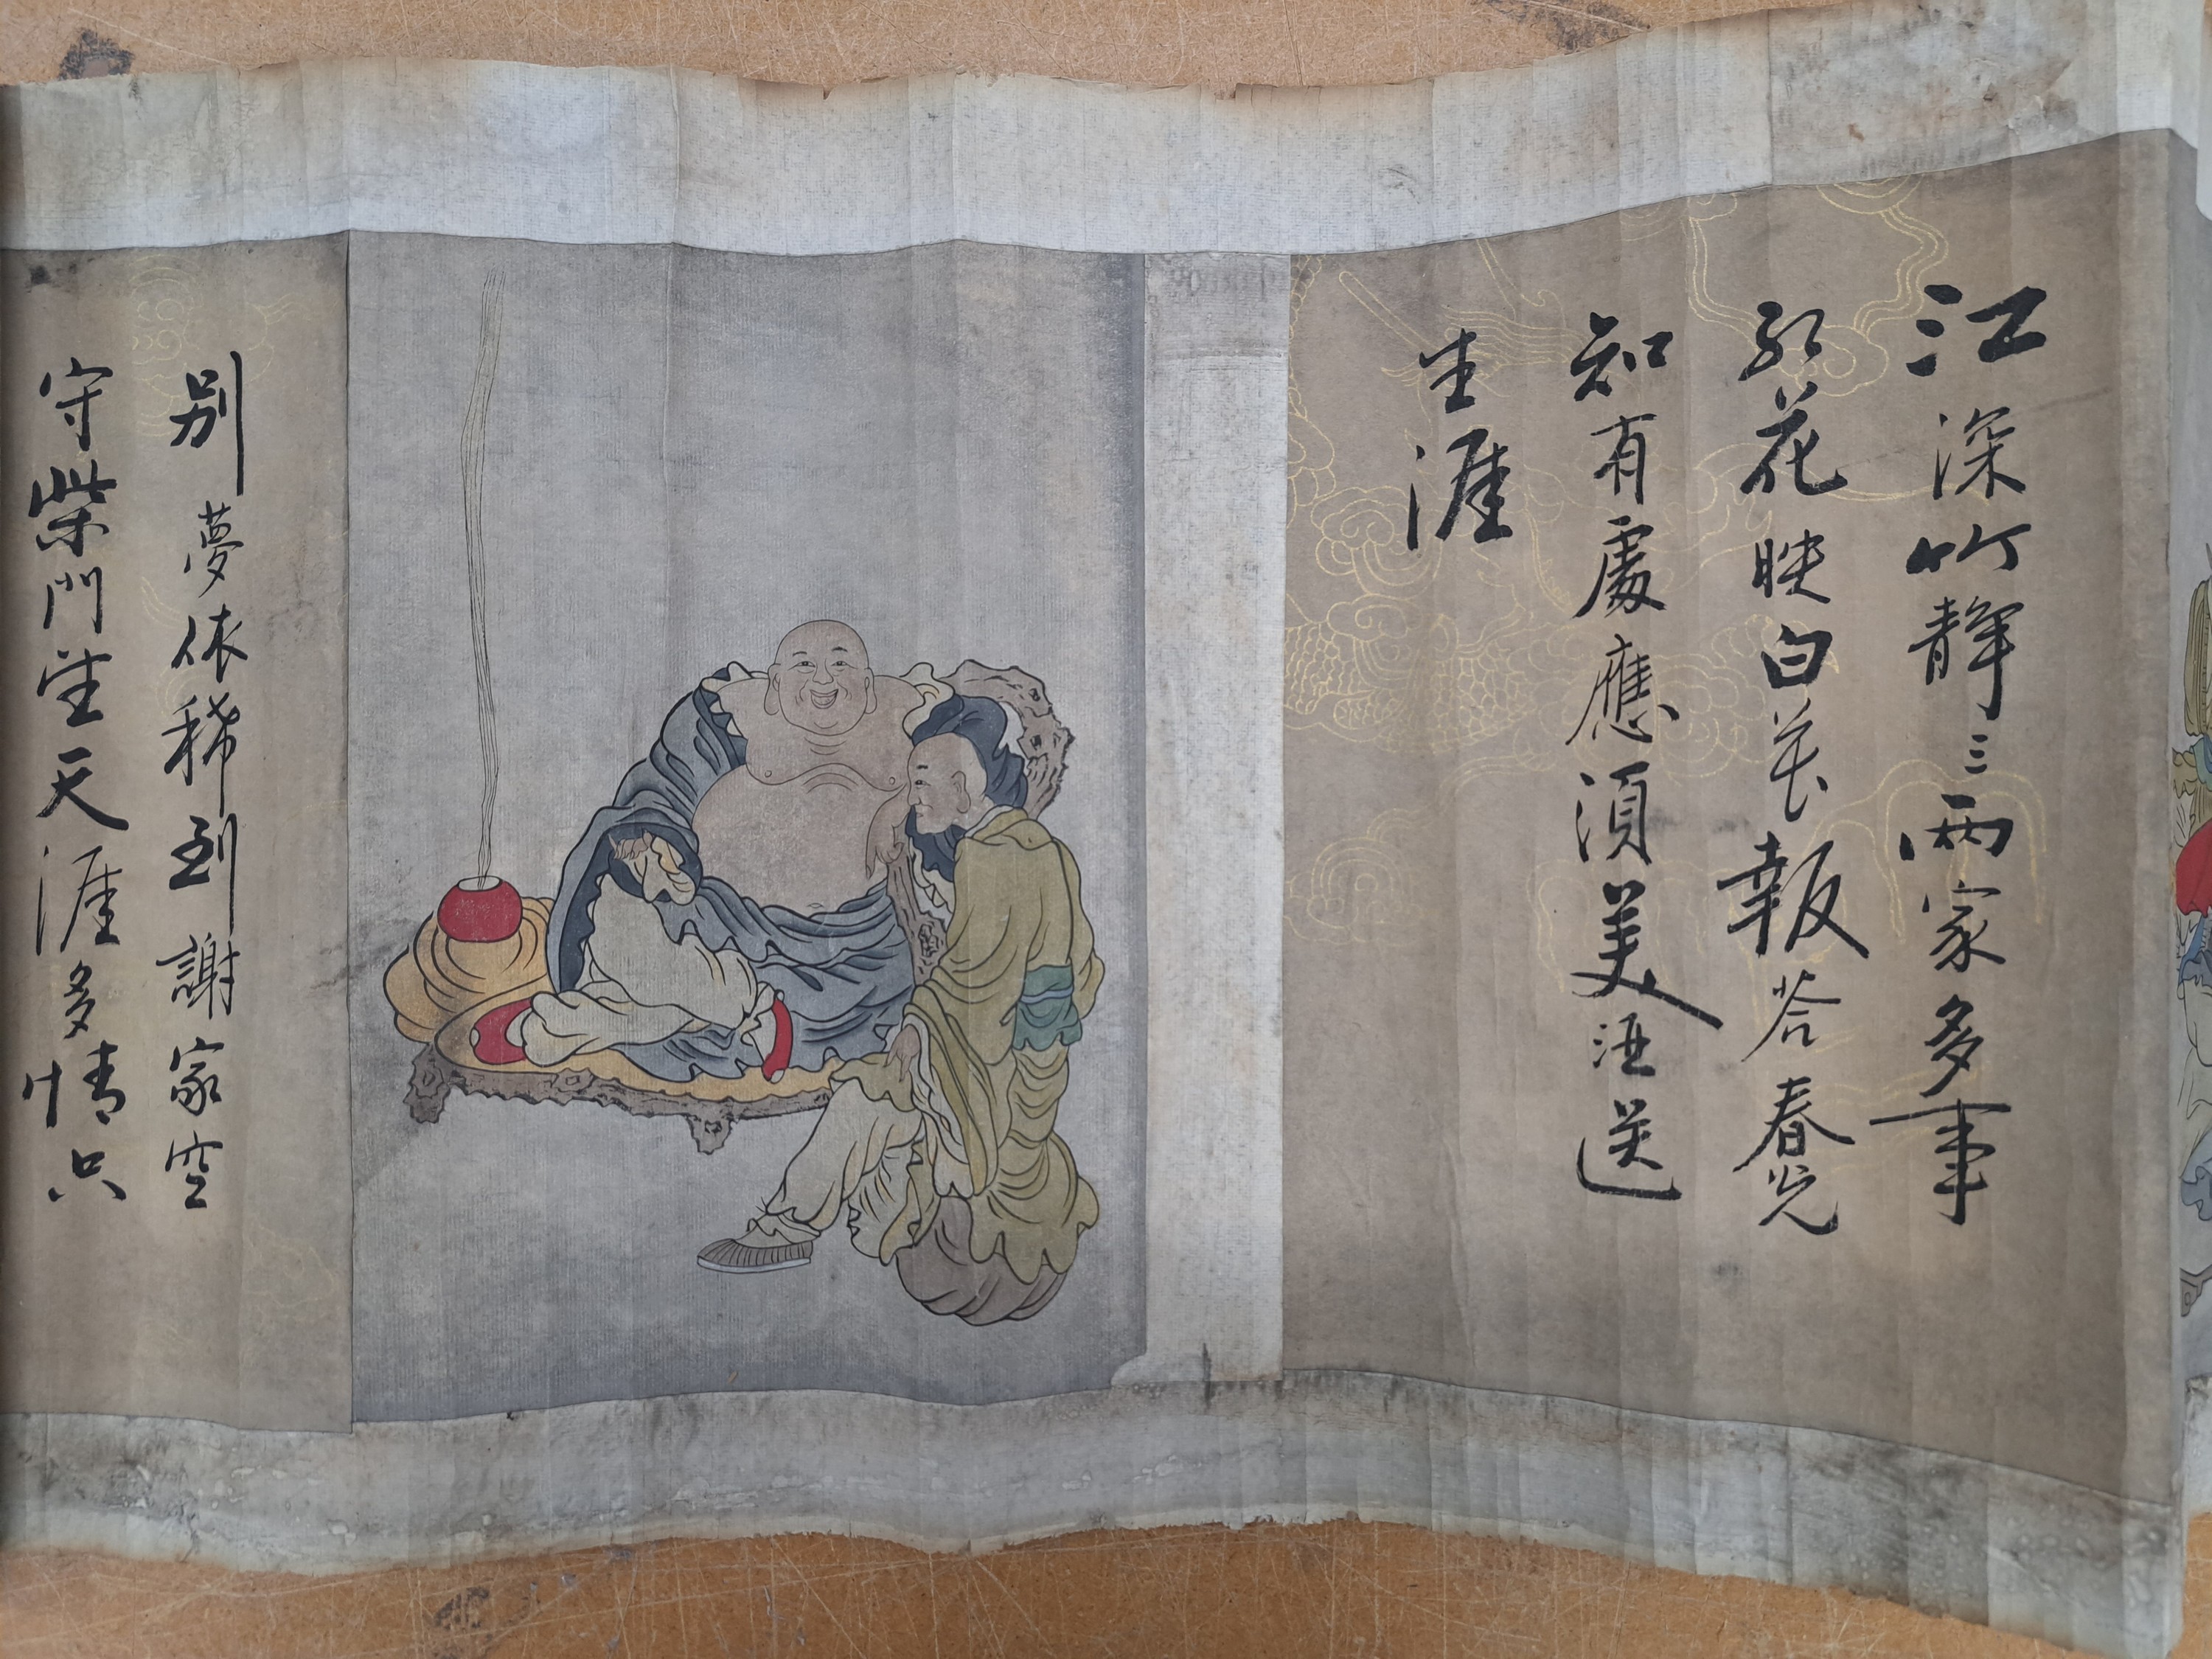 江深竹静三兩家多事
紅花映白花報荅春光
知有處應須美酒送
生涯
別夢依稀到謝家空
守柴門望天涯多情只